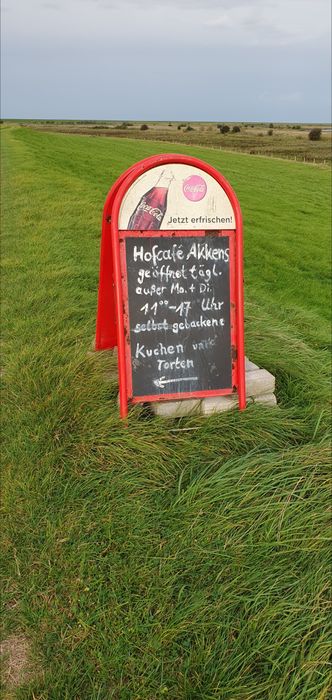 Coca-Cola
Coca-Cola
Jetzt erfrischen!
Hofcafé Akkens
geöffnet tägl.
außer Mo. + Di.
11⁰⁰-17 Uhr
selbst gebackene
Kuchen und
Torten